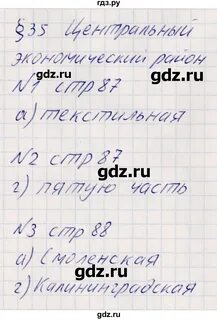 §35 Центральный
экономический район
N1 стр 87
а) текстильная
N2 стр 87
г) пятую часть
N3 стр 88
а) Смоленская
г) Калининградская
gdz.ru
gdz.ru
gdz.ru
gdz.ru
gdz.ru
gdz.ru